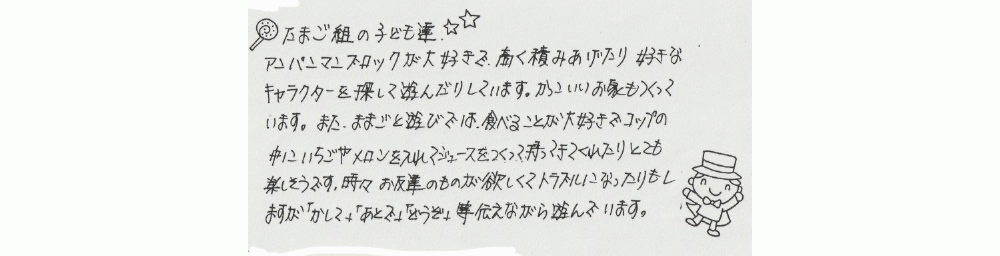 たまご組の子ども達
アンパンマンブロックが大好きで、高く積みあげたり 好きな
キャラクターを探して遊んだりしています。かっこいいお家もつくって
います。また、ままごと遊びでは、食べることが大好きでコップの
中にいちごやメロンを入れてジュースをつくって持ってきてくれたりとても
楽しそうです。時々 お友達のものが欲しくてトラブルになったりもし
ますが「かして」「あとで」「どうぞ」等伝えながら遊んでいます。